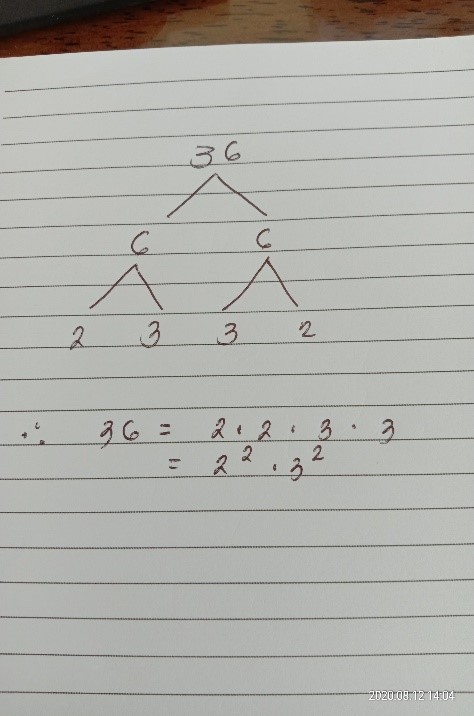 36
6 6
2 3 3 2
∴ 36 = 2 · 2 · 3 · 3
= 2² · 3²
2020.08.12 14:04